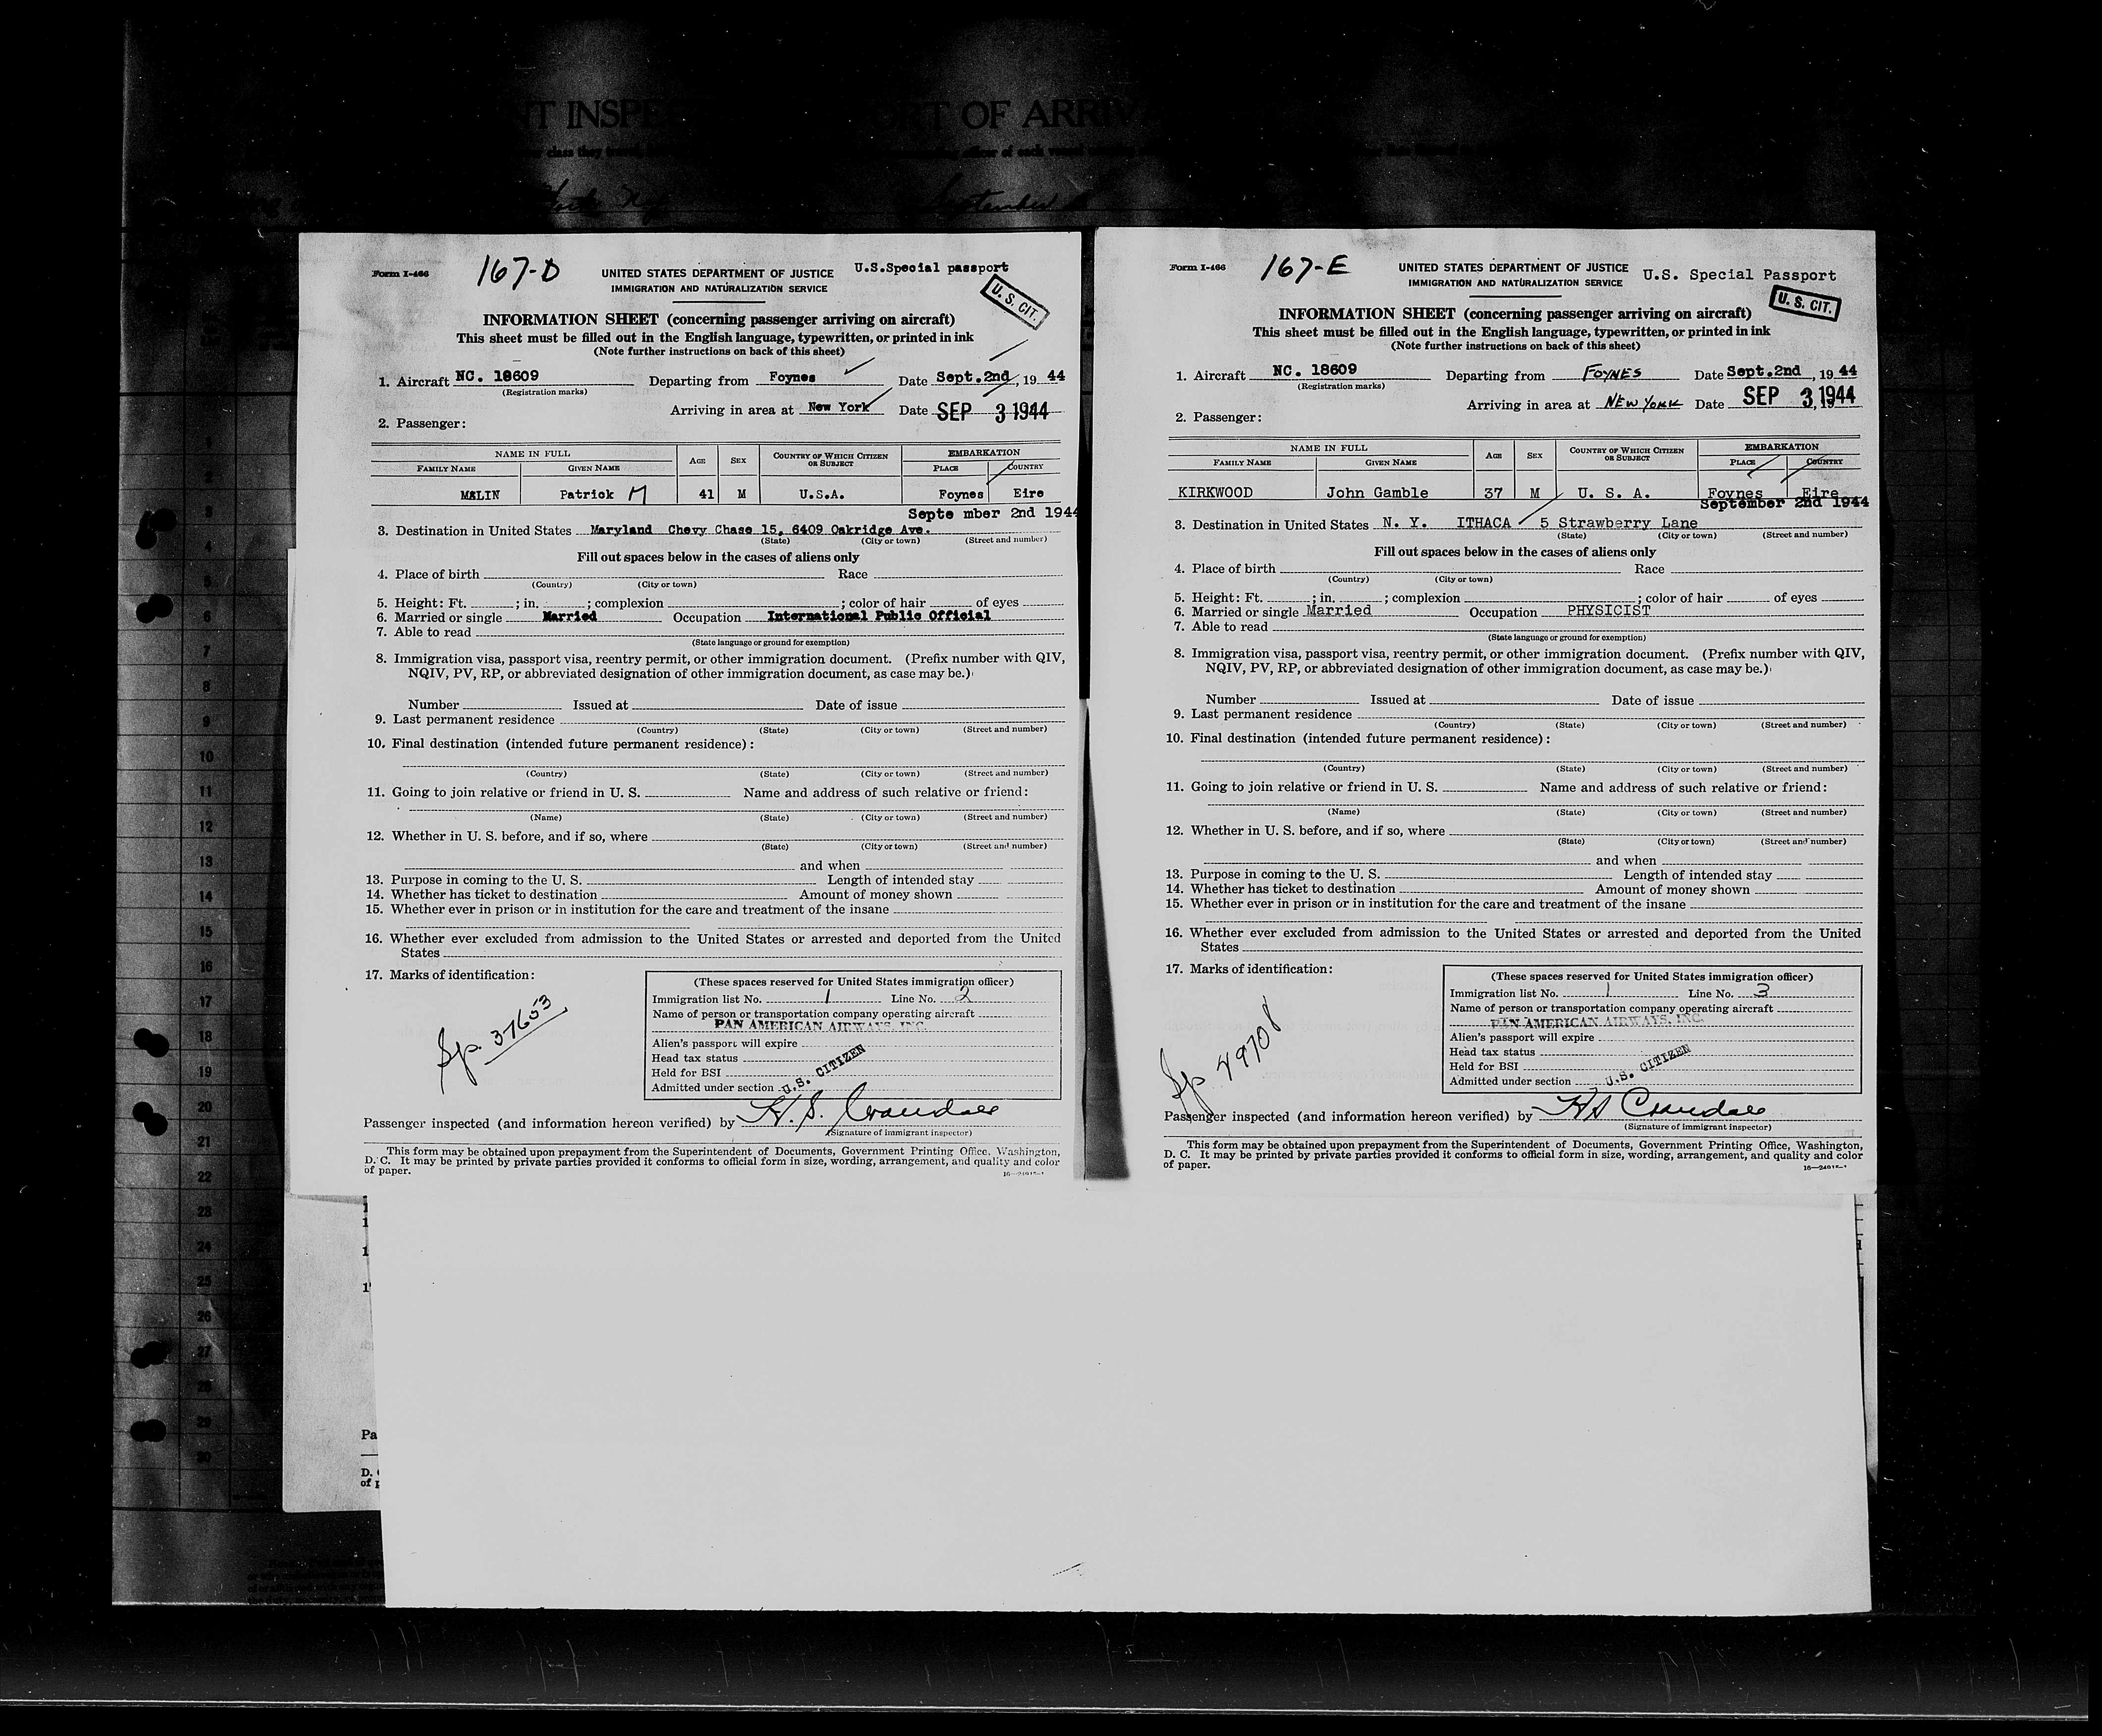 NT INSPE ORT OF ARRIV
Form I-466
167-D
UNITED STATES DEPARTMENT OF JUSTICE
U.S.Special passport
IMMIGRATION AND NATURALIZATION SERVICE
U. S. CIT.
INFORMATION SHEET (concerning passenger arriving on aircraft)
This sheet must be filled out in the English language, typewritten, or printed in ink
(Note further instructions on back of this sheet)
1. Aircraft NC. 18609 Departing from Foynes Date Sept.2nd, 19 44
(Registration marks)
Arriving in area at New York Date SEP 3 1944
2. Passenger:
NAME IN FULL AGE SEX COUNTRY OF WHICH CITIZEN OR SUBJECT EMBARKATION
FAMILY NAME GIVEN NAME PLACE COUNTRY
MALIN Patrick M 41 M U.S.A. Foynes Eire
Septe mber 2nd 1944
3. Destination in United States Maryland Chevy Chase 15, 6409 Oakridge Ave.
(State) (City or town) (Street and number)
Fill out spaces below in the cases of aliens only
4. Place of birth Race
(Country) (City or town)
5. Height: Ft. ; in. ; complexion ; color of hair of eyes
6. Married or single Married Occupation International Public Official
7. Able to read
(State language or ground for exemption)
8. Immigration visa, passport visa, reentry permit, or other immigration document. (Prefix number with QIV,
NQIV, PV, RP, or abbreviated designation of other immigration document, as case may be.)
Number Issued at Date of issue
9. Last permanent residence
(Country) (State) (City or town) (Street and number)
10. Final destination (intended future permanent residence):
(Country) (State) (City or town) (Street and number)
11. Going to join relative or friend in U. S. Name and address of such relative or friend:
(Name) (State) (City or town) (Street and number)
12. Whether in U. S. before, and if so, where
(State) (City or town) (Street and number)
and when
13. Purpose in coming to the U. S. Length of intended stay
14. Whether has ticket to destination Amount of money shown
15. Whether ever in prison or in institution for the care and treatment of the insane
16. Whether ever excluded from admission to the United States or arrested and deported from the United
States
17. Marks of identification:
Sp. 37653
(These spaces reserved for United States immigration officer)
Immigration list No. 1 Line No. 2
Name of person or transportation company operating aircraft
PAN AMERICAN AIRWAYS, INC.
Alien's passport will expire
Head tax status
Held for BSI
Admitted under section U.S. CITIZEN
Passenger inspected (and information hereon verified) by H. S. Crandall
(Signature of immigrant inspector)
This form may be obtained upon prepayment from the Superintendent of Documents, Government Printing Office, Washington,
D. C. It may be printed by private parties provided it conforms to official form in size, wording, arrangement, and quality and color
of paper.
Form I-466
167-E
UNITED STATES DEPARTMENT OF JUSTICE
U.S. Special Passport
IMMIGRATION AND NATURALIZATION SERVICE
U. S. CIT.
INFORMATION SHEET (concerning passenger arriving on aircraft)
This sheet must be filled out in the English language, typewritten, or printed in ink
(Note further instructions on back of this sheet)
1. Aircraft NC. 18609 Departing from FOYNES Date Sept.2nd, 19 44
(Registration marks)
Arriving in area at NEW YORK Date SEP 3, 1944
2. Passenger:
NAME IN FULL AGE SEX COUNTRY OF WHICH CITIZEN OR SUBJECT EMBARKATION
FAMILY NAME GIVEN NAME PLACE COUNTRY
KIRKWOOD John Gamble 37 M U. S. A. Foynes Eire
September 2nd 1944
3. Destination in United States N. Y. ITHACA 5 Strawberry Lane
(State) (City or town) (Street and number)
Fill out spaces below in the cases of aliens only
4. Place of birth Race
(Country) (City or town)
5. Height: Ft. ; in. ; complexion ; color of hair of eyes
6. Married or single Married Occupation PHYSICIST
7. Able to read
(State language or ground for exemption)
8. Immigration visa, passport visa, reentry permit, or other immigration document. (Prefix number with QIV,
NQIV, PV, RP, or abbreviated designation of other immigration document, as case may be.)
Number Issued at Date of issue
9. Last permanent residence
(Country) (State) (City or town) (Street and number)
10. Final destination (intended future permanent residence):
(Country) (State) (City or town) (Street and number)
11. Going to join relative or friend in U. S. Name and address of such relative or friend:
(Name) (State) (City or town) (Street and number)
12. Whether in U. S. before, and if so, where
(State) (City or town) (Street and number)
and when
13. Purpose in coming to the U. S. Length of intended stay
14. Whether has ticket to destination Amount of money shown
15. Whether ever in prison or in institution for the care and treatment of the insane
16. Whether ever excluded from admission to the United States or arrested and deported from the United
States
17. Marks of identification:
Sp 49708
(These spaces reserved for United States immigration officer)
Immigration list No. 1 Line No. 3
Name of person or transportation company operating aircraft
PAN AMERICAN AIRWAYS, INC.
Alien's passport will expire
Head tax status
Held for BSI
Admitted under section U.S. CITIZEN
Passenger inspected (and information hereon verified) by H S Crandall
(Signature of immigrant inspector)
This form may be obtained upon prepayment from the Superintendent of Documents, Government Printing Office, Washington,
D. C. It may be printed by private parties provided it conforms to official form in size, wording, arrangement, and quality and color
of paper.